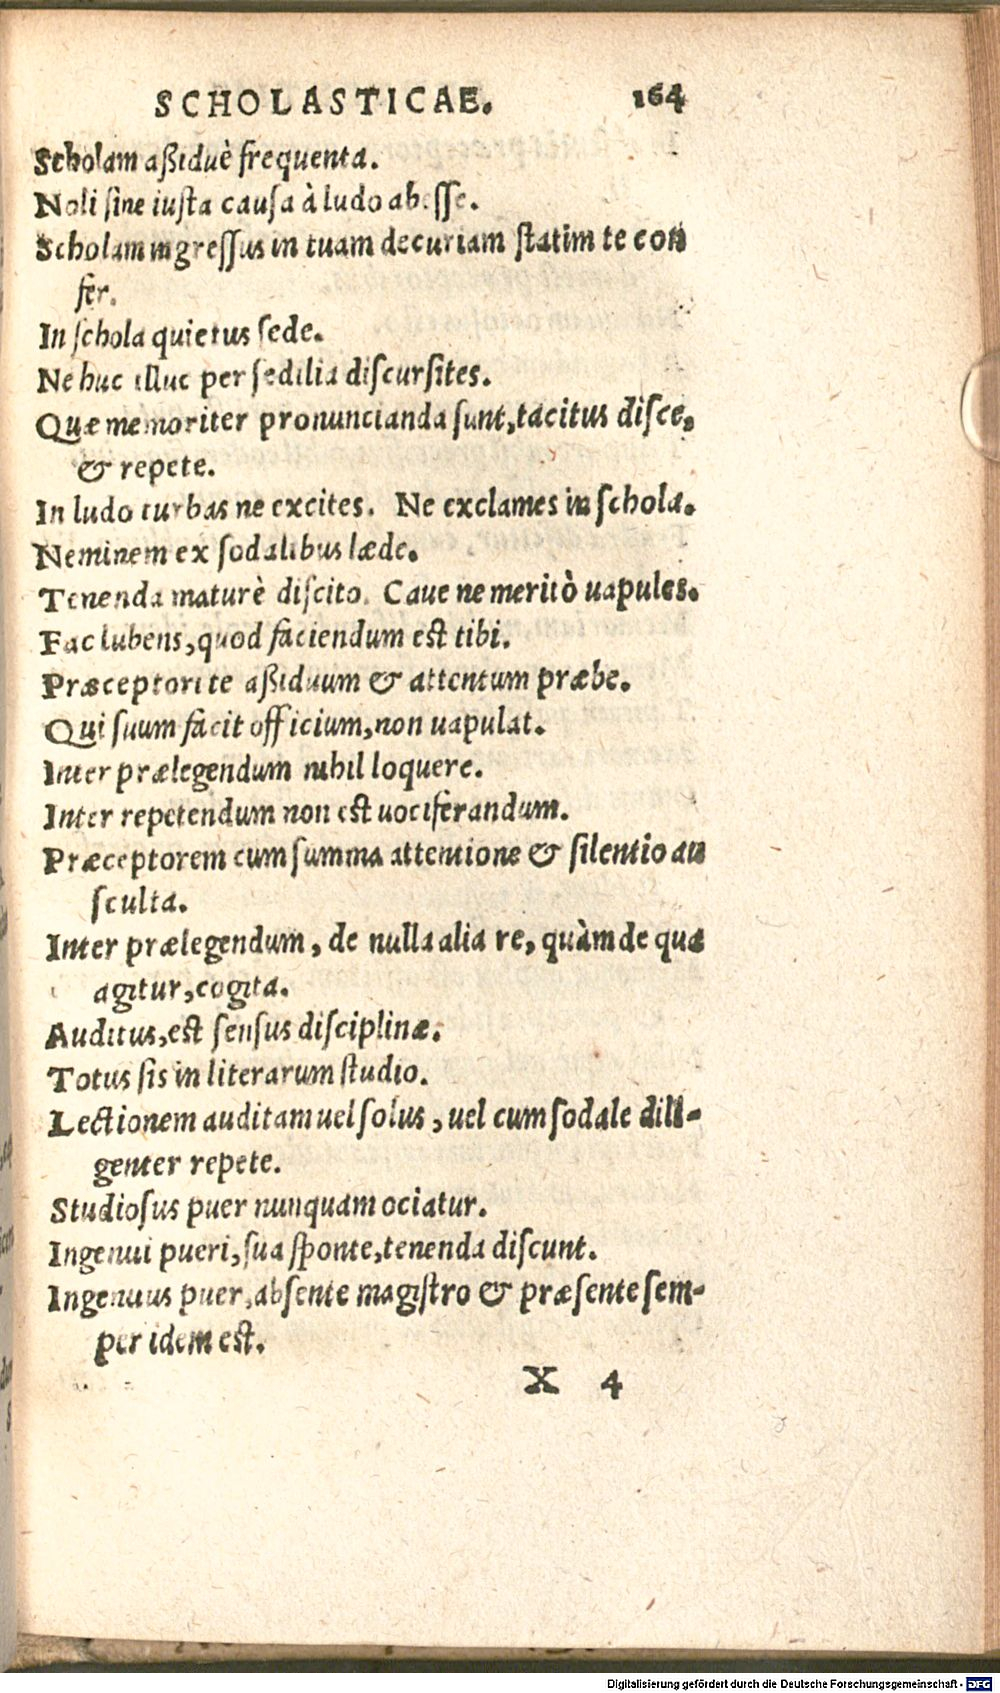 SCHOLASTICAE. 164
Scholam aßiduè frequenta.
Noli sine iusta causa à ludo abesse.
Scholam ingressus in tuam decuriam statim te con
fer.
In schola quietus sede.
Ne huc illuc per sedilia discursites.
Quæ memoriter pronuncianda sunt, tacitus disce,
& repete.
In ludo turbas ne excites. Ne exclames in schola.
Neminem ex sodalibus læde.
Tenenda maturè discito. Caue ne meritò uapules.
Fac lubens, quod faciendum est tibi.
Præceptori te aßiduum & attentum præbe.
Qui suum facit officium, non uapulat.
Inter prælegendum nihil loquere.
Inter repetendum non est uociferandum.
Præceptorem cum summa attentione & silentio au
sculta.
Inter prælegendum, de nulla alia re, quàm de qua
agitur, cogita.
Auditus, est sensus disciplinæ.
Totus sis in literarum studio.
Lectionem auditam uel solus, uel cum sodale dili-
genter repete.
Studiosus puer nunquam ociatur.
Ingenui pueri, sua sponte, tenenda discunt.
Ingenuus puer, absente magistro & præsente sem-
per idem est.
X 4
Digitalisierung gefördert durch die Deutsche Forschungsgemeinschaft - DFG